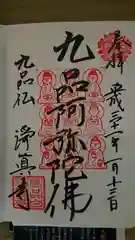 奉拝
平成三十一年一月十三日
九品阿弥陀佛
九品仏
浄真寺